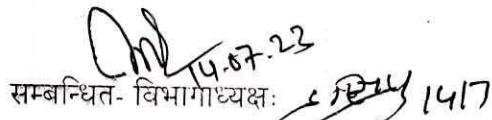 14.07.23
सम्बन्धित- विभागाध्यक्षः 1417